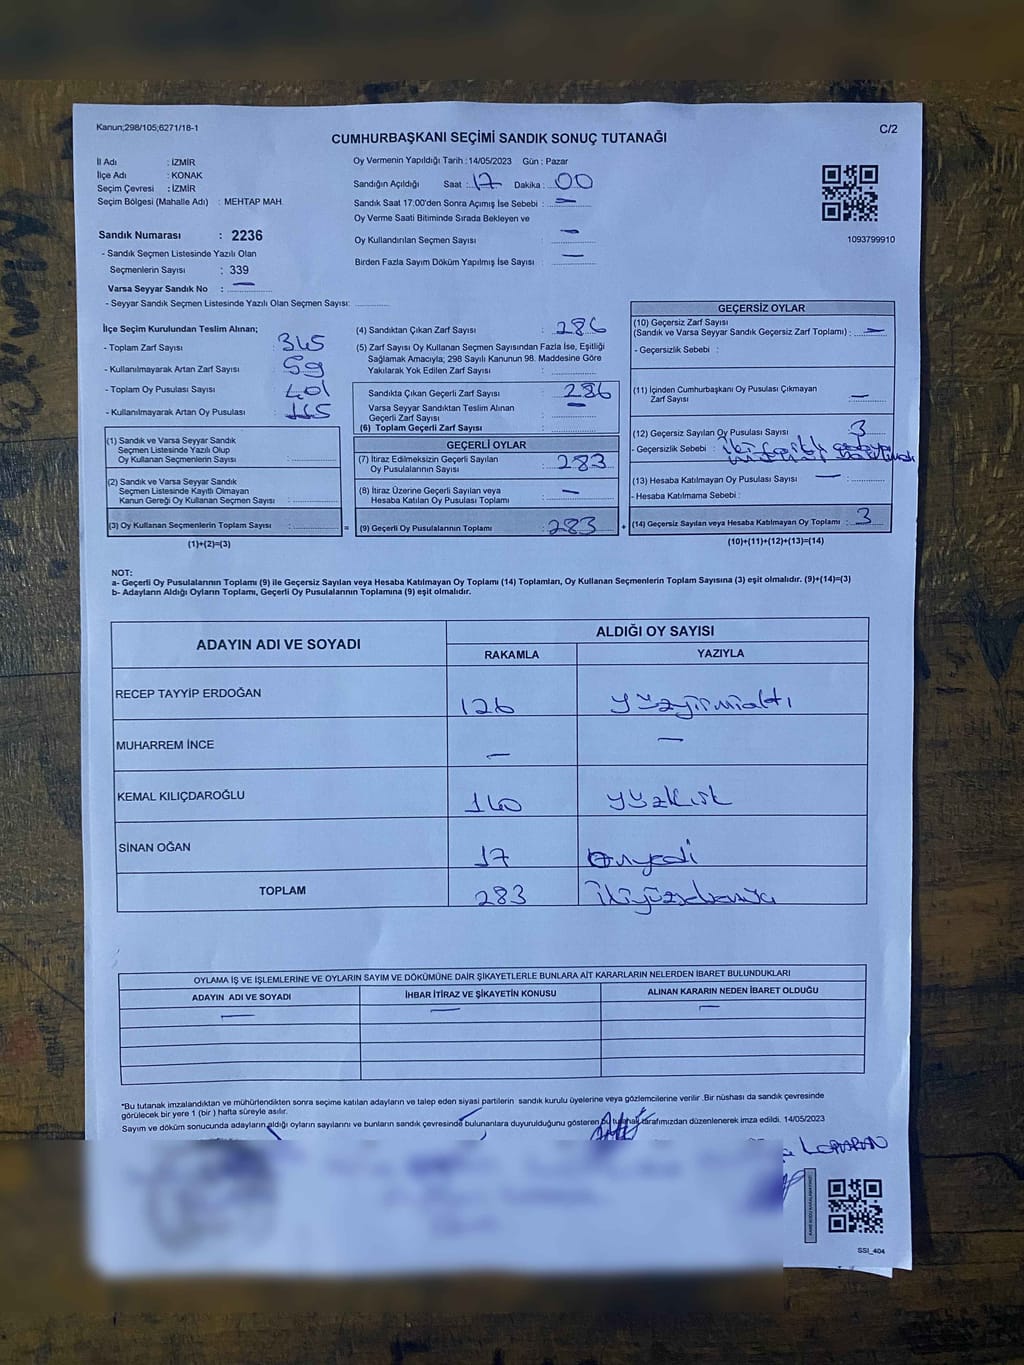 Kanun;298/105;6271/18-1
C/2
CUMHURBAŞKANI SEÇİMİ SANDIK SONUÇ TUTANAĞI
İl Adı : İZMİR
İlçe Adı : KONAK
Seçim Çevresi : İZMİR
Seçim Bölgesi (Mahalle Adı) : MEHTAP MAH.
Oy Vermenin Yapıldığı Tarih : 14/05/2023 Gün : Pazar
Sandığın Açıldığı Saat : 17 Dakika : 00
Sandık Saat 17:00'den Sonra Açımış İse Sebebi : —
Oy Verme Saati Bitiminde Sırada Bekleyen ve
Oy Kullandırılan Seçmen Sayısı : —
Birden Fazla Sayım Döküm Yapılmış İse Sayısı : —
1093799910
Sandık Numarası : 2236
- Sandık Seçmen Listesinde Yazılı Olan
Seçmenlerin Sayısı : 339
Varsa Seyyar Sandık No : —
- Seyyar Sandık Seçmen Listesinde Yazılı Olan Seçmen Sayısı:
İlçe Seçim Kurulundan Teslim Alınan;
- Toplam Zarf Sayısı : 345
- Kullanılmayarak Artan Zarf Sayısı : 59
- Toplam Oy Pusulası Sayısı : 401
- Kullanılmayarak Artan Oy Pusulası :
(1) Sandık ve Varsa Seyyar Sandık
Seçmen Listesinde Yazılı Olup
Oy Kullanan Seçmenlerin Sayısı :
(2) Sandık ve Varsa Seyyar Sandık
Seçmen Listesinde Kayıtlı Olmayan
Kanun Gereği Oy Kullanan Seçmen Sayısı :
(3) Oy Kullanan Seçmenlerin Toplam Sayısı :
=
(1)+(2)=(3)
(4) Sandıktan Çıkan Zarf Sayısı : 286
(5) Zarf Sayısı Oy Kullanan Seçmen Sayısından Fazla İse, Eşitliği
Sağlamak Amacıyla; 298 Sayılı Kanunun 98. Maddesine Göre
Yakılarak Yok Edilen Zarf Sayısı :
Sandıkta Çıkan Geçerli Zarf Sayısı : 286
Varsa Seyyar Sandıktan Teslim Alınan
Geçerli Zarf Sayısı : —
(6) Toplam Geçerli Zarf Sayısı :
GEÇERLİ OYLAR
(7) İtiraz Edilmeksizin Geçerli Sayılan
Oy Pusulalarının Sayısı : 283
(8) İtiraz Üzerine Geçerli Sayılan veya
Hesaba Katılan Oy Pusulası Toplamı : —
(9) Geçerli Oy Pusulalarının Toplamı : 283
+
GEÇERSİZ OYLAR
(10) Geçersiz Zarf Sayısı
(Sandık ve Varsa Seyyar Sandık Geçersiz Zarf Toplamı) : —
- Geçersizlik Sebebi :
(11) İçinden Cumhurbaşkanı Oy Pusulası Çıkmayan
Zarf Sayısı : —
(12) Geçersiz Sayılan Oy Pusulası Sayısı : 3
- Geçersizlik Sebebi :
(13) Hesaba Katılmayan Oy Pusulası Sayısı : —
- Hesaba Katılmama Sebebi :
(14) Geçersiz Sayılan veya Hesaba Katılmayan Oy Toplamı : 3
(10)+(11)+(12)+(13)=(14)
NOT:
a- Geçerli Oy Pusulalarının Toplamı (9) ile Geçersiz Sayılan veya Hesaba Katılmayan Oy Toplamı (14) Toplamları, Oy Kullanan Seçmenlerin Toplam Sayısına (3) eşit olmalıdır. (9)+(14)=(3)
b- Adayların Aldığı Oyların Toplamı, Geçerli Oy Pusulalarının Toplamına (9) eşit olmalıdır.
ADAYIN ADI VE SOYADI
ALDIĞI OY SAYISI
RAKAMLA YAZIYLA
RECEP TAYYİP ERDOĞAN 126 yüzyirmialtı
MUHARREM İNCE — —
KEMAL KILIÇDAROĞLU 140 yüzkırk
SİNAN OĞAN 17 onyedi
TOPLAM 283
OYLAMA İŞ VE İŞLEMLERİNE VE OYLARIN SAYIM VE DÖKÜMÜNE DAİR ŞİKAYETLERLE BUNLARA AİT KARARLARIN NELERDEN İBARET BULUNDUKLARI
ADAYIN ADI VE SOYADI İHBAR İTİRAZ VE ŞİKAYETİN KONUSU ALINAN KARARIN NEDEN İBARET OLDUĞU
— — —
*Bu tutanak imzalandıktan ve mühürlendikten sonra seçime katılan adayların ve talep eden siyasi partilerin sandık kurulu üyelerine veya gözlemcilerine verilir .Bir nüshası da sandık çevresinde
görülecek bir yere 1 (bir ) hafta süreyle asılır.
Sayım ve döküm sonucunda adayların aldığı oyların sayılarını ve bunların sandık çevresinde bulunanlara duyurulduğunu gösteren bu tutanak tarafımızdan düzenlenerek imza edildi. 14/05/2023
SSİ_404